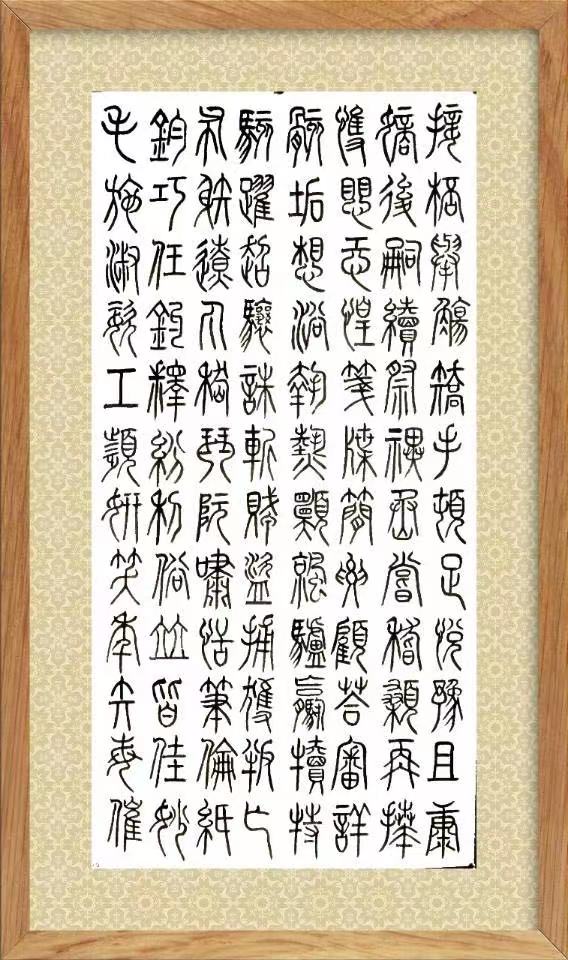 接杯舉觴矯手頓足悅豫且康
嫡後嗣續祭祀蒸嘗稽顙再拜
悚懼恐惶箋牒簡要顧答審詳
骸垢想浴執熱願涼驢騾犢特
駭躍超驤誅斬賊盜捕獲叛亡
布射遼丸嵇琴阮嘯恬筆倫紙
鈞巧任釣釋紛利俗並皆佳妙
毛施淑姿工顰妍笑年矢每催